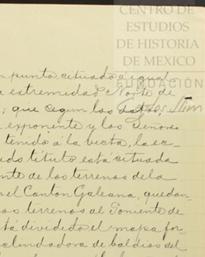 CENTRO DE
ESTUDIOS
DE HISTORIA
DE MEXICO
FUNDACIÓN
Carlos Slim
punto situado a igual
extremidad Norte de
; que segun los datos
exponente y los Señores
tenido a la vista, la es-
título está situada
de los terrenos de la
el Canton Galeana, quedan-
terrenos al Poniente de
dividido el mapa for-
deslindadora de baldios del